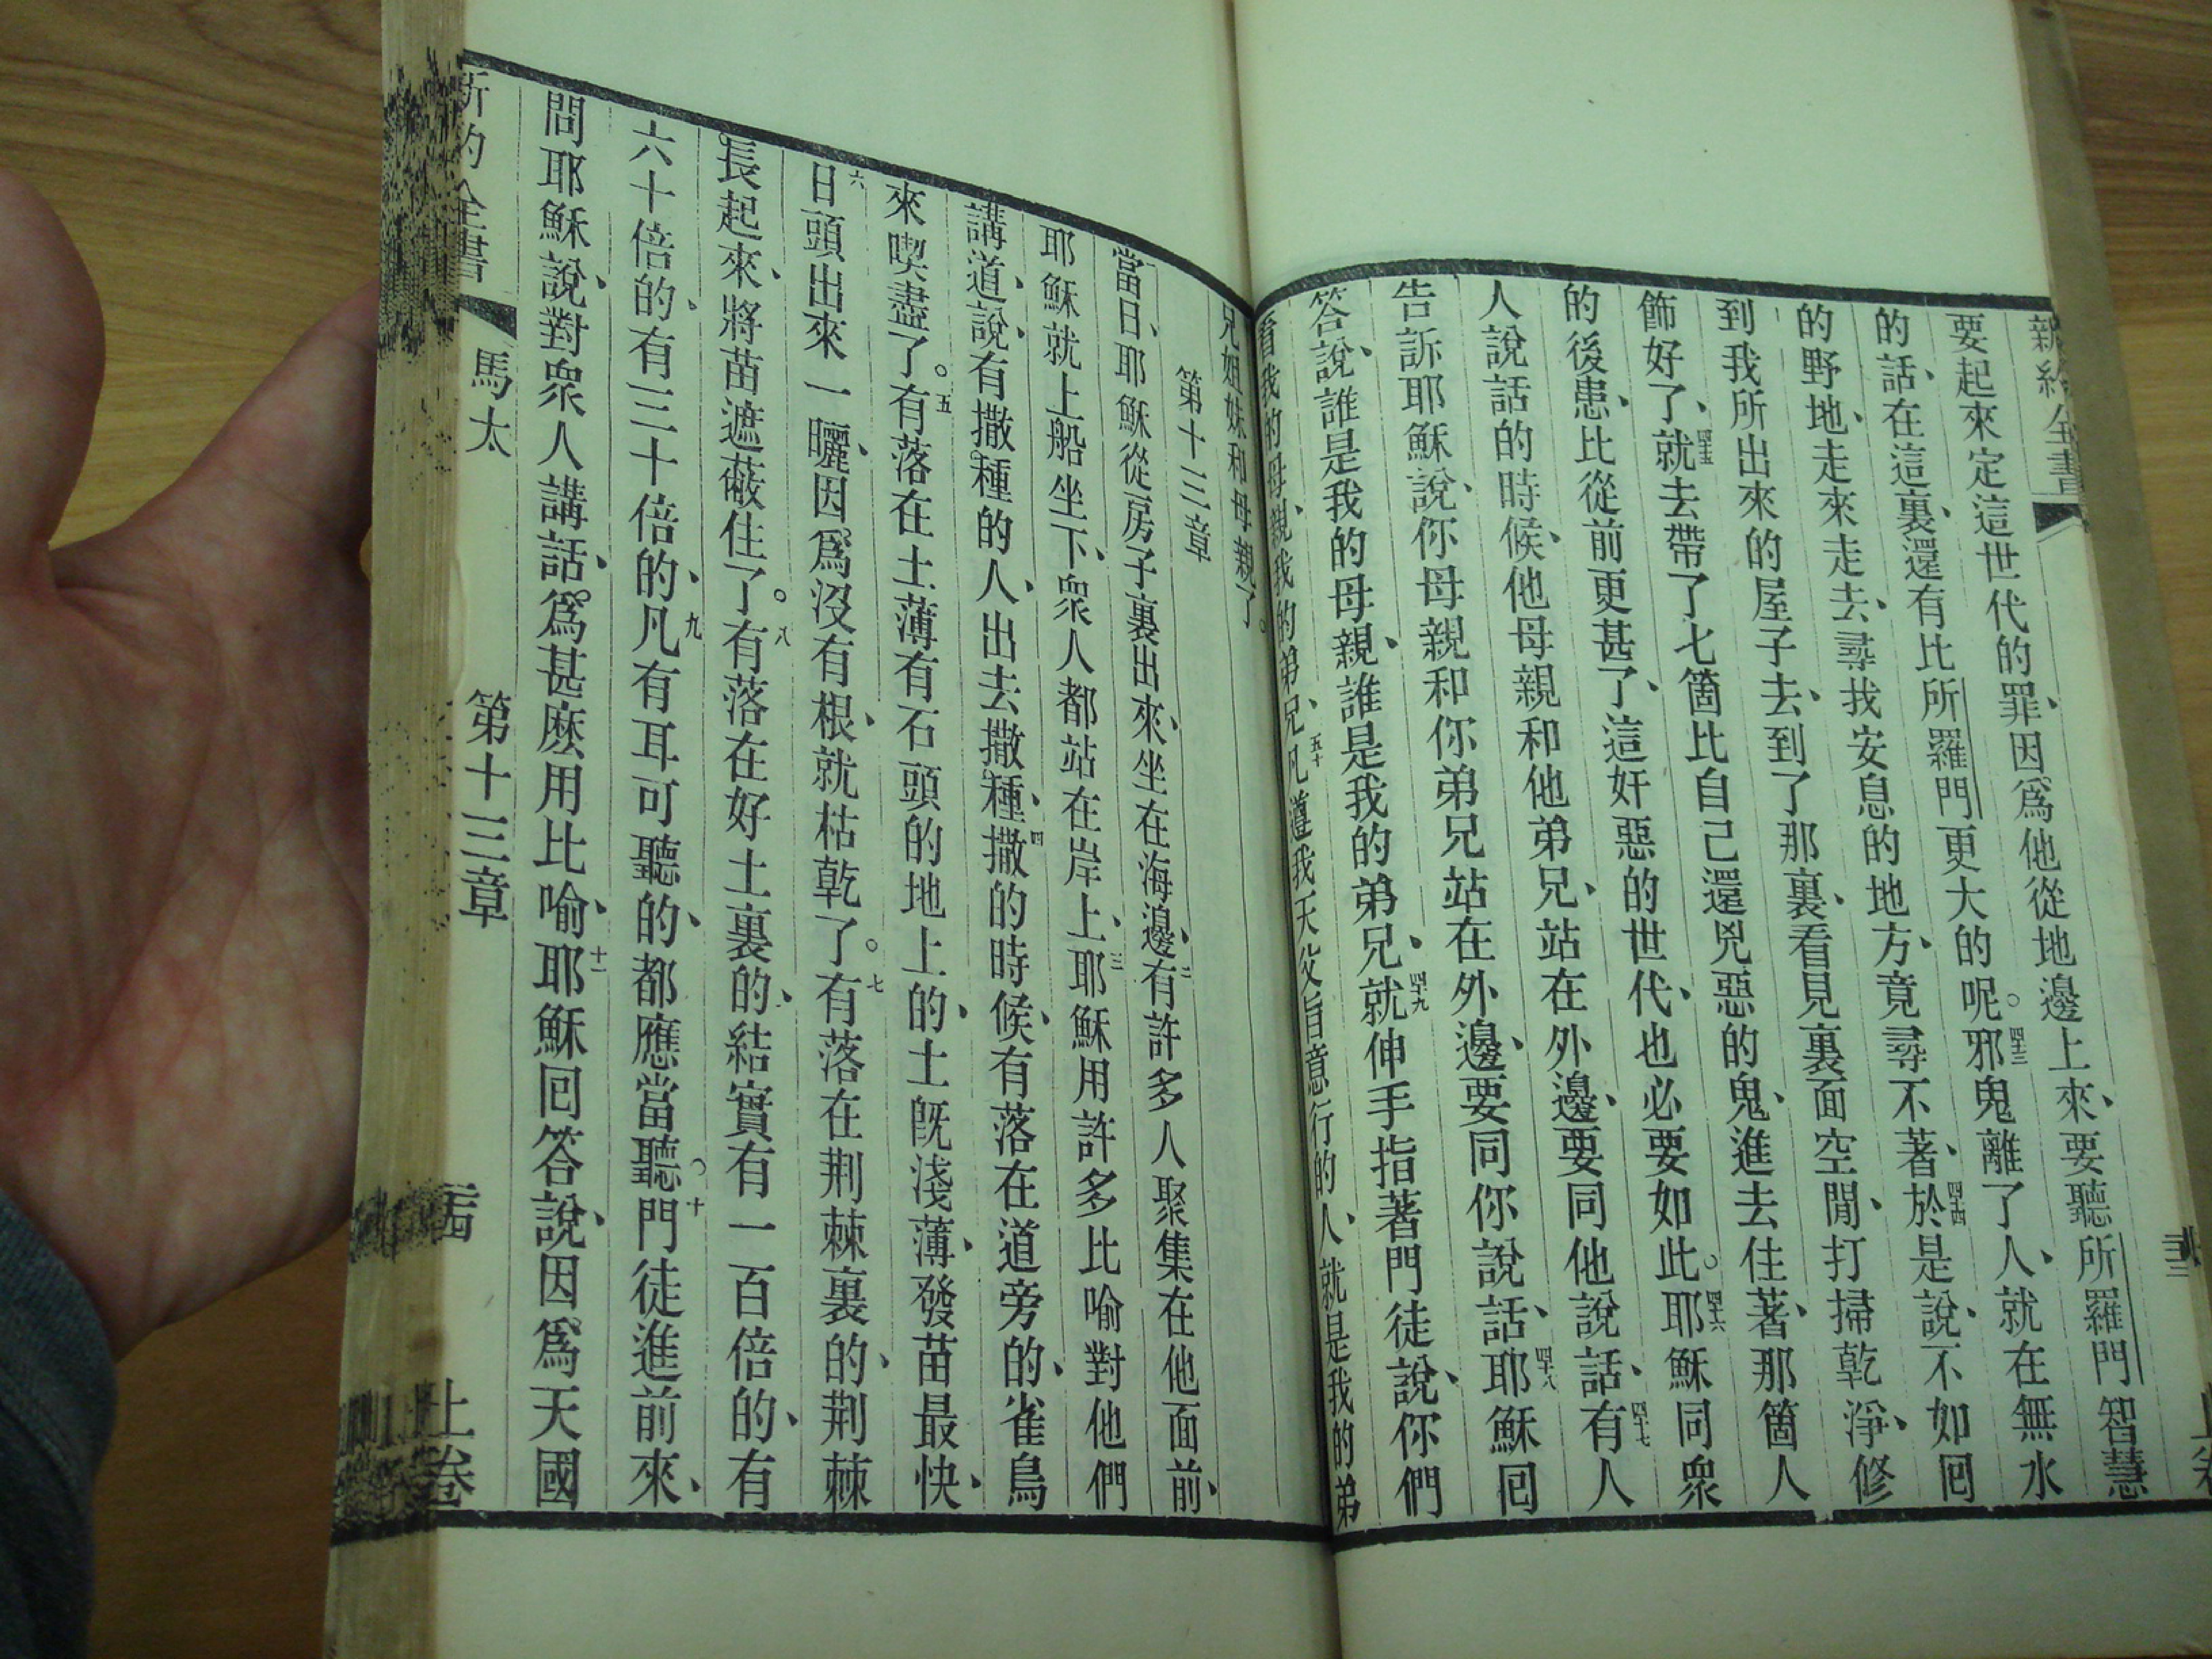 新約全書
要起來定這世代的罪、因爲他從地邊上來、要聽所羅門智慧
的話、在這裏、還有比所羅門更大的呢。四十三邪鬼離了人、就在無水
的野地、走來走去、尋找安息的地方、竟尋不著、四十四於是說、不如囘
到我所出來的屋子去、到了那裏、看見裏面空閒、打掃乾淨、修
飾好了、四十五就去帶了七箇比自己還兇惡的鬼、進去住著、那箇人
的後患、比從前更甚了、這奸惡的世代、也必要如此。四十六耶穌同衆
人說話的時候、他母親和他弟兄、站在外邊、要同他說話、四十七有人
告訴耶穌說、你母親和你弟兄站在外邊、要同你說話、四十八耶穌囘
答、說、誰是我的母親、誰是我的弟兄、四十九就伸手指著門徒說、你們
看我的母親、我的弟兄、五十凡遵我天父旨意行的人、就是我的弟
兄姐妹和母親了。
第十三章
當日、耶穌從房子裏出來、坐在海邊、二有許多人聚集在他面前、
耶穌就上船坐下、衆人都站在岸上、三耶穌用許多比喻對他們
講道、說、有撒種的人、出去撒種、四撒的時候、有落在道旁的、雀鳥
來喫盡了。五有落在土薄有石頭的地上的、土旣淺薄、發苗最快、
六日頭出來一曬、因爲沒有根、就枯乾了。七有落在荆棘裏的、荆棘
長起來、將苗遮蔽住了。八有落在好土裏的、結實有一百倍的、有
六十倍的、有三十倍的、九凡有耳可聽的、都應當聽。十門徒進前來、
問耶穌說、對衆人講話、爲甚麽用比喻、十一耶穌囘答說、因爲天國
新約全書 馬太 第十三章 上卷